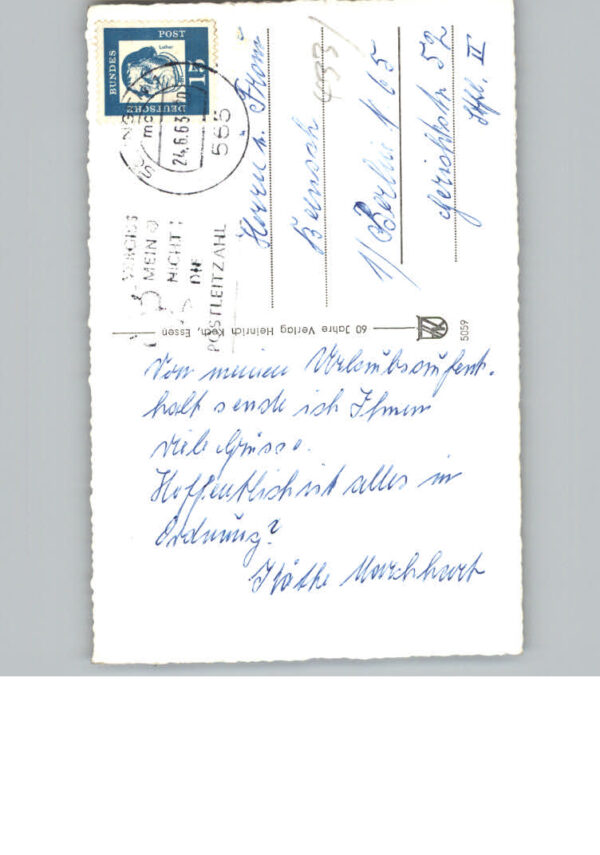 DEUTSCHE
BUNDES
POST
15
Luther
24.6.63
565
VERGISS
MEIN
NICHT
DIE
POSTLEITZAHL
Herrn u. Frau
493
1/ Berlin N 65
Gerichtstr. 52
II
60 Jahre Verlag Heinrich Koch, Essen
5059
Von meinen Urlaubsaufent-
halt sende ich Ihnen
viele Grüsse.
Hoffentlich ist alles in
Ordnung?
Käthe